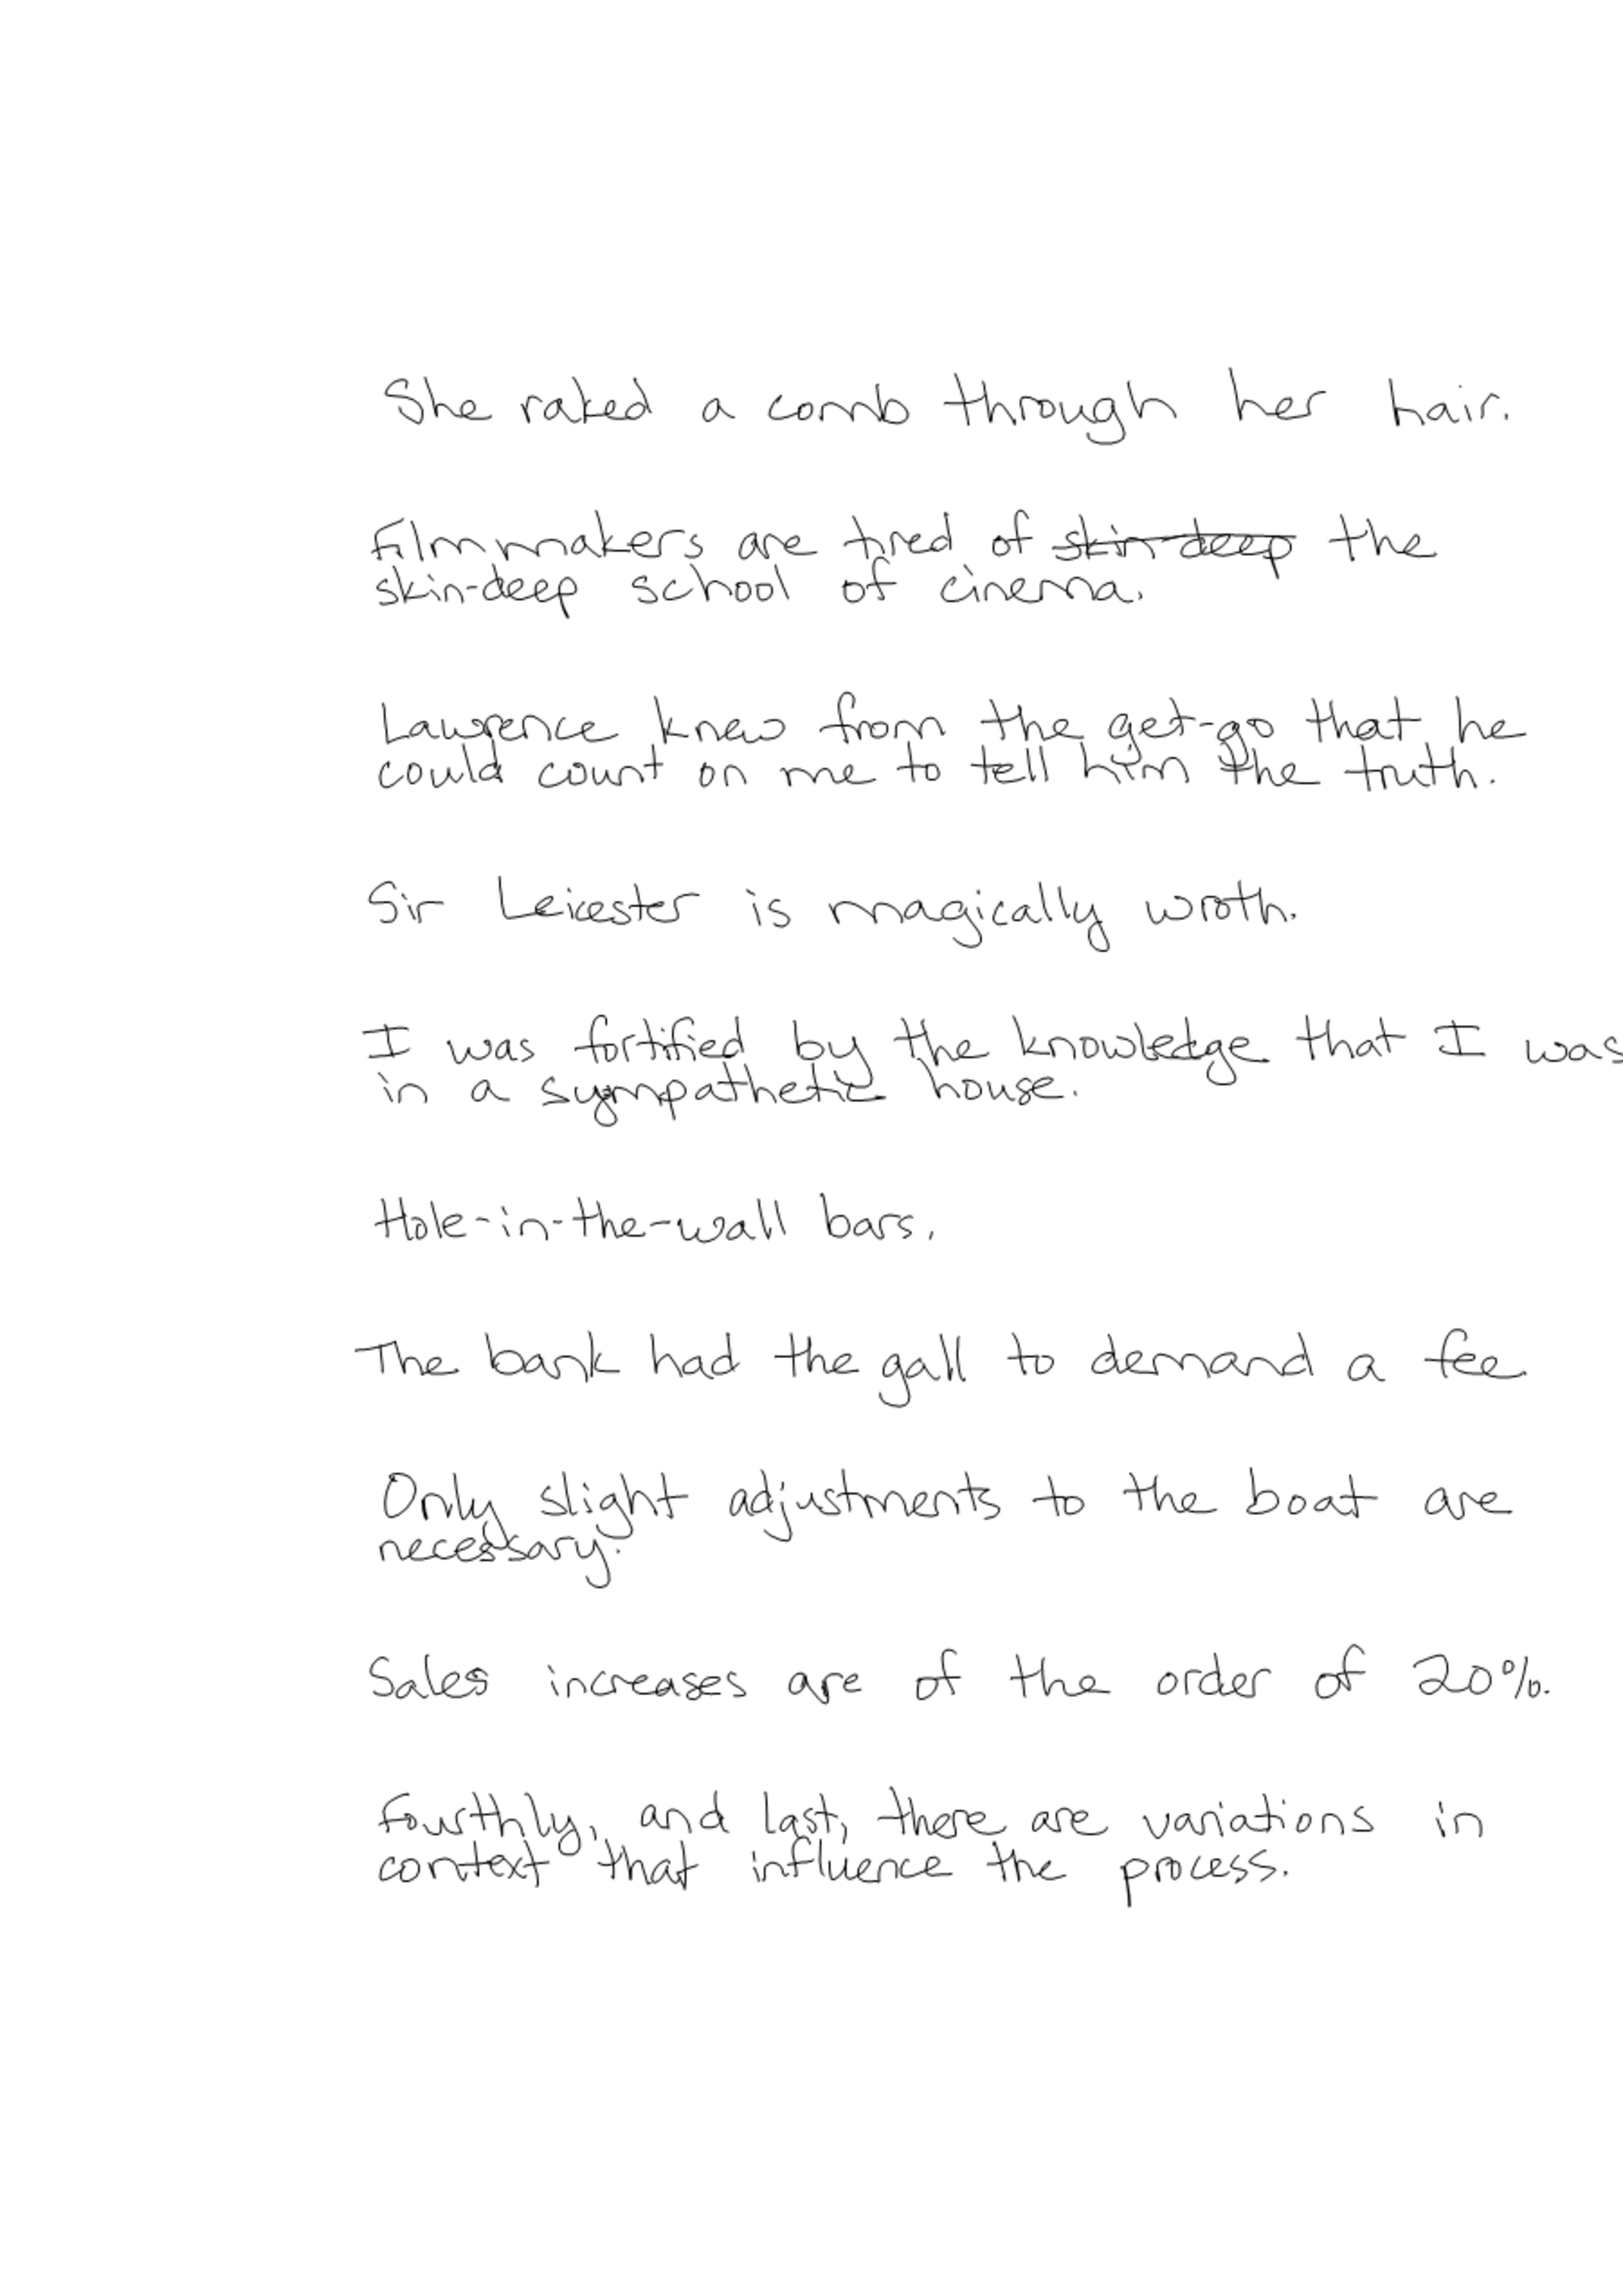 She raked a comb through her hair.
Filmmakers are tired of skin-deep the
skin-deep school of cinema.
Lawrence knew from the get-go that he
could count on me to tell him the truth.
Sir Leicester is magically wroth.
I was fortified by the knowledge that I was
in a sympathetic house.
Hole-in-the-wall bars.
The bank had the gall to demand a fee
Only slight adjustments to the boat are
necessary.
Sales increases are of the order of 20%.
Fourthly, and last, there are variations in
context that influence the process.